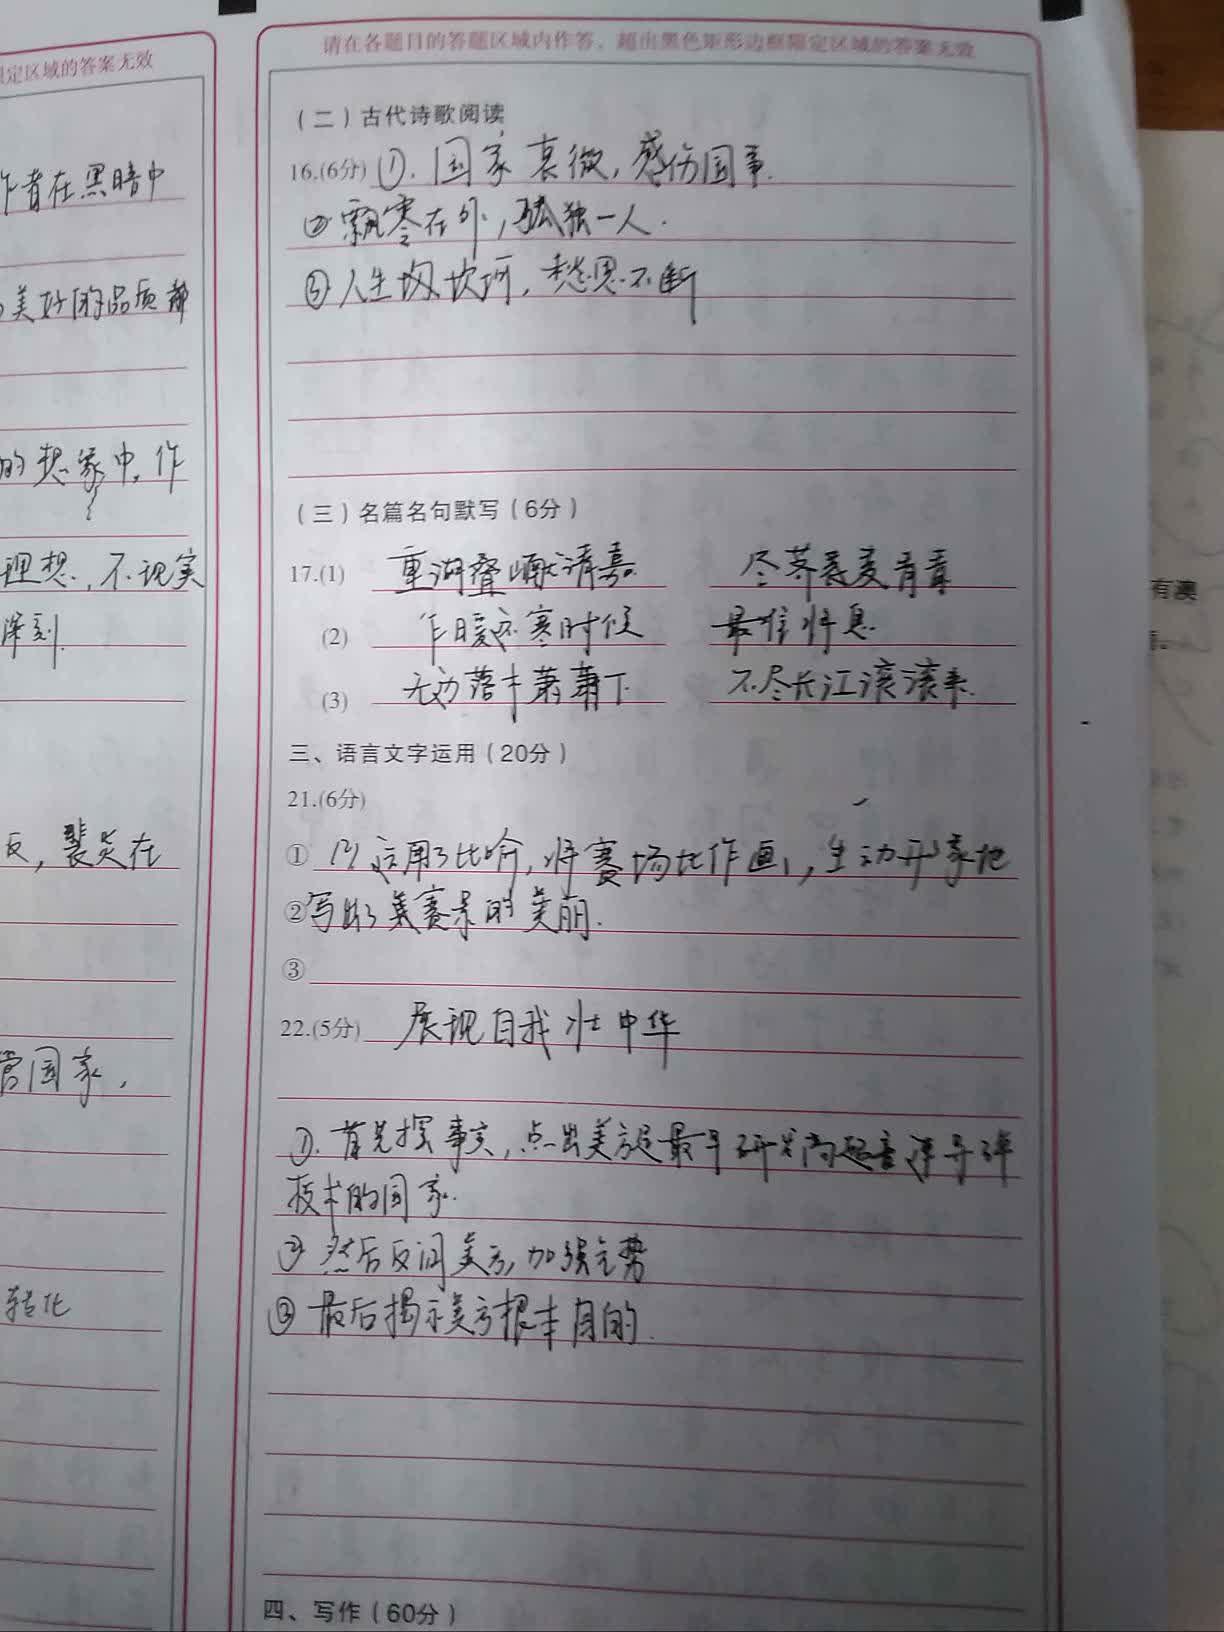 限定区域的答案无效
作者在黑暗中
美好的品质都
的想象中,作
理想,不现实
深刻.
反,裴炎在
营国家,
转化
请在各题目的答题区域内作答,超出黑色矩形边框限定区域的答案无效
(二)古代诗歌阅读
16.(6分) ①.国家衰微,感伤国事.
②飘零在外,孤独一人.
③人生坎坷,愁思不断
(三)名篇名句默写(6分)
17.(1) 重湖叠巘清嘉. 尽荠麦青青
(2) 乍暖还寒时候 最难将息.
(3) 无边落木萧萧下. 不尽长江滚滚来.
三、语言文字运用(20分)
21.(6分)
① 运用了比喻,将赛场比作画,生动形象地
②写出了赛景的美丽.
③
22.(5分) 展现自我壮中华
①.首先摆事实,点出美方是最早研发高超音速导弹
技术的国家.
② 然后反问美方,加强气势
③ 最后揭示美方根本目的.
四、写作(60分)
有澳